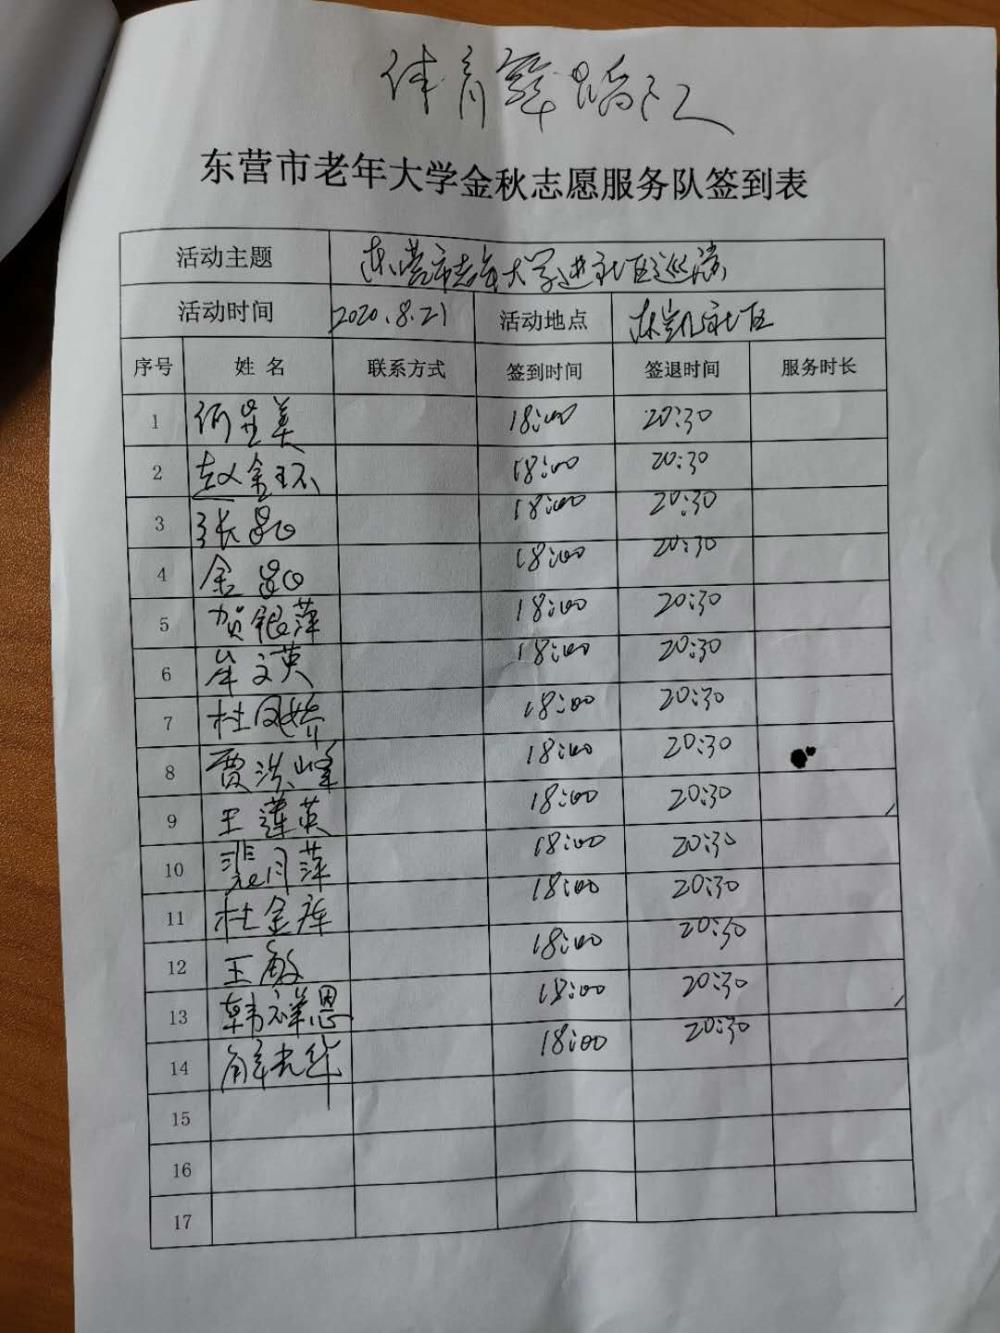 体育舞蹈队
东营市老年大学金秋志愿服务队签到表
活动主题 东营市老年大学进社区巡演
活动时间 2020.8.21 活动地点 东凯社区
序号 姓名 联系方式 签到时间 签退时间 服务时长
1 美 18:00 20:30
2 赵金环 18:00 20:30
3 张昆 18:00 20:30
4 金昆 18:00 20:30
5 贺银萍 18:00 20:30
6 崔文英 18:00 20:30
7 杜凤娇 18:00 20:30
8 贾洪峰 18:00 20:30
9 王莲英 18:00 20:30
10 裴月萍 18:00 20:30
11 杜金库 18:00 20:30
12 王敏 18:00 20:30
13 韩祥恩 18:00 20:30
14 解光华 18:00 20:30
15
16
17